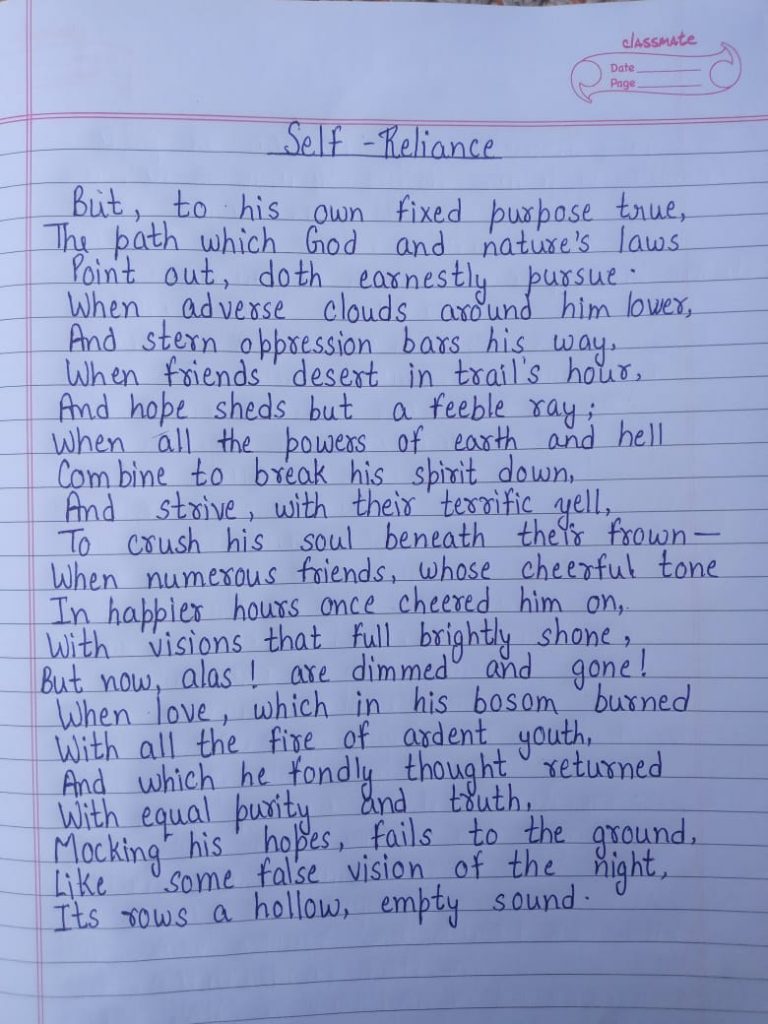 classmate
Date
Page
Self-Reliance
But, to his own fixed purpose true,
The path which God and nature's laws
Point out, doth earnestly pursue.
When adverse clouds around him lower,
And stern oppression bars his way,
When friends desert in trail's hour,
And hope sheds but a feeble ray;
When all the powers of earth and hell
Combine to break his spirit down,
And strive, with their terrific yell,
To crush his soul beneath their frown—
When numerous friends, whose cheerful tone
In happier hours once cheered him on,
With visions that full brightly shone,
But now, alas! are dimmed and gone!
When love, which in his bosom burned
With all the fire of ardent youth,
And which he fondly thought returned
With equal purity and truth,
Mocking his hopes, fails to the ground,
Like some false vision of the night,
Its rows a hollow, empty sound.